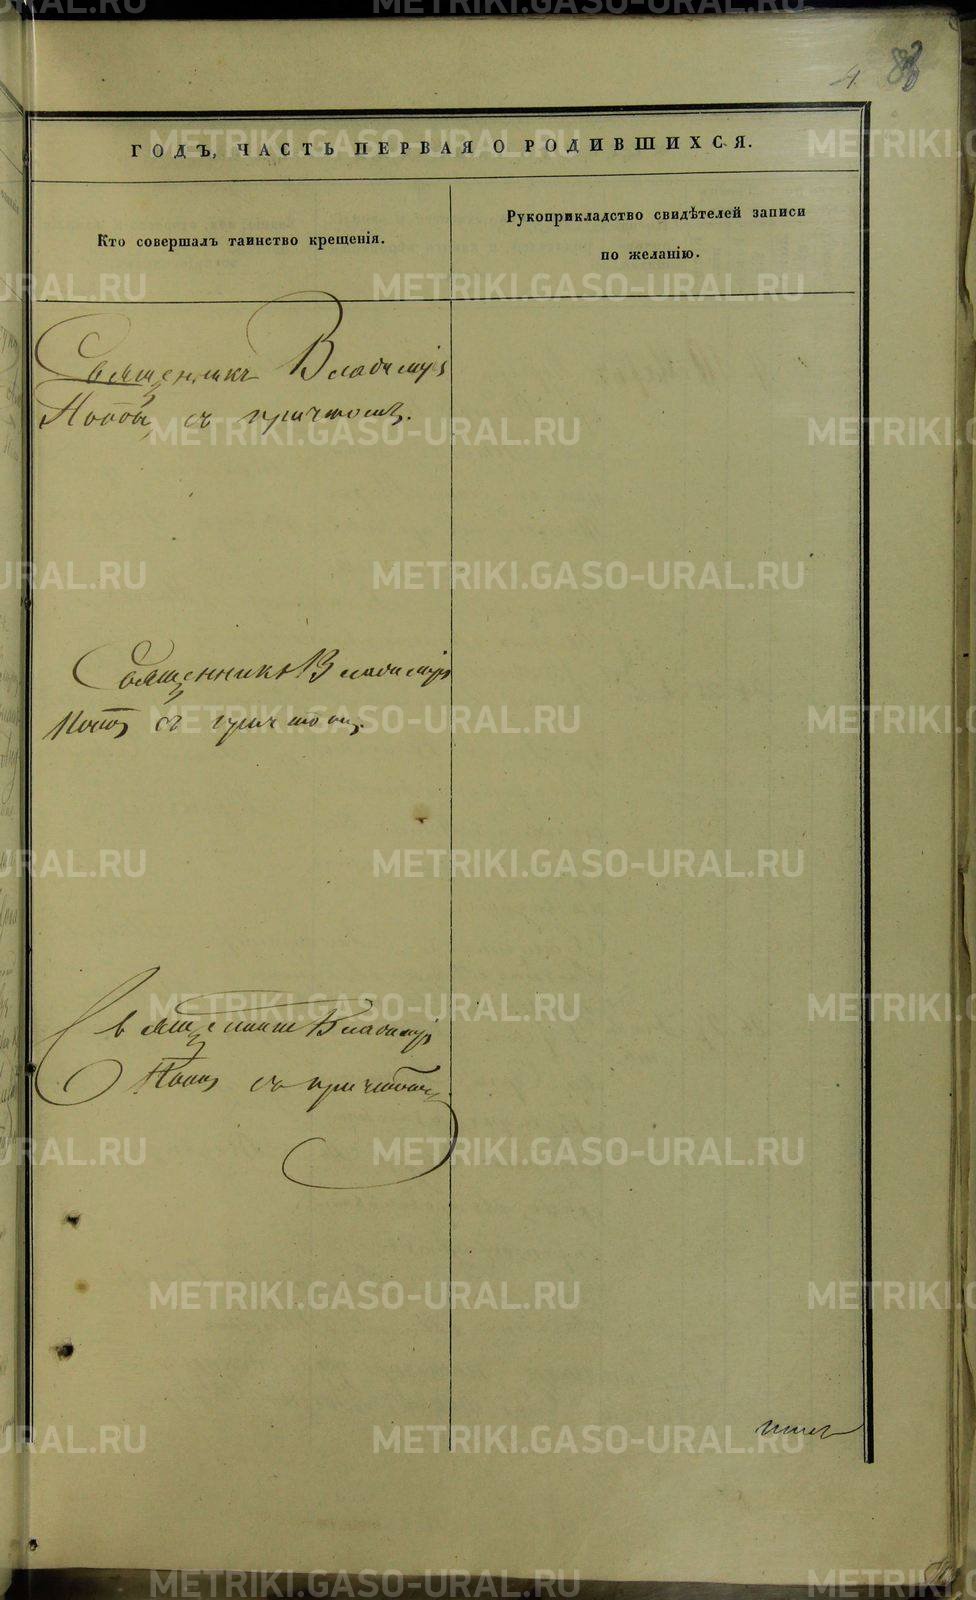 4
ГОДЪ, ЧАСТЬ ПЕРВАЯ О РОДИВШИХСЯ.
Кто совершалъ таинство крещенія.
Рукоприкладство свидѣтелей записи
по желанію.
Священникъ Владиміръ
Поповъ съ причтомъ.
Священникъ Владиміръ
Поповъ съ причтомъ.
Священникъ Владиміръ
Поповъ съ причтомъ.
METRIKI.GASO-URAL.RU